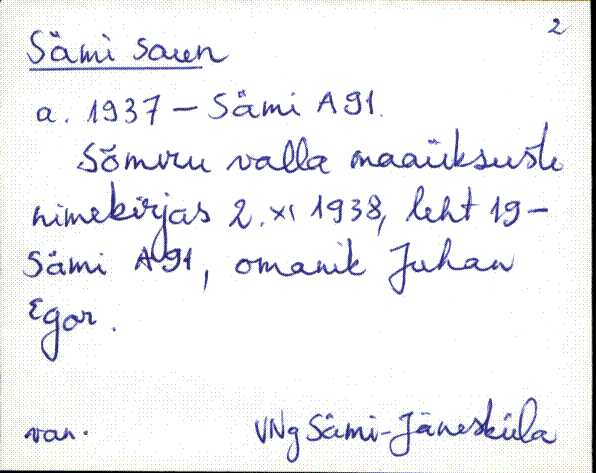 2
Sämi saun
a. 1937 – Sämi A 91.
Sõmeru valla maaüksuste
nimekirjas 2. XI 1938, leht 19 –
Sämi A 91, omanik Juhan
Egor.
van.
VNg Sämi-Jäneskúla